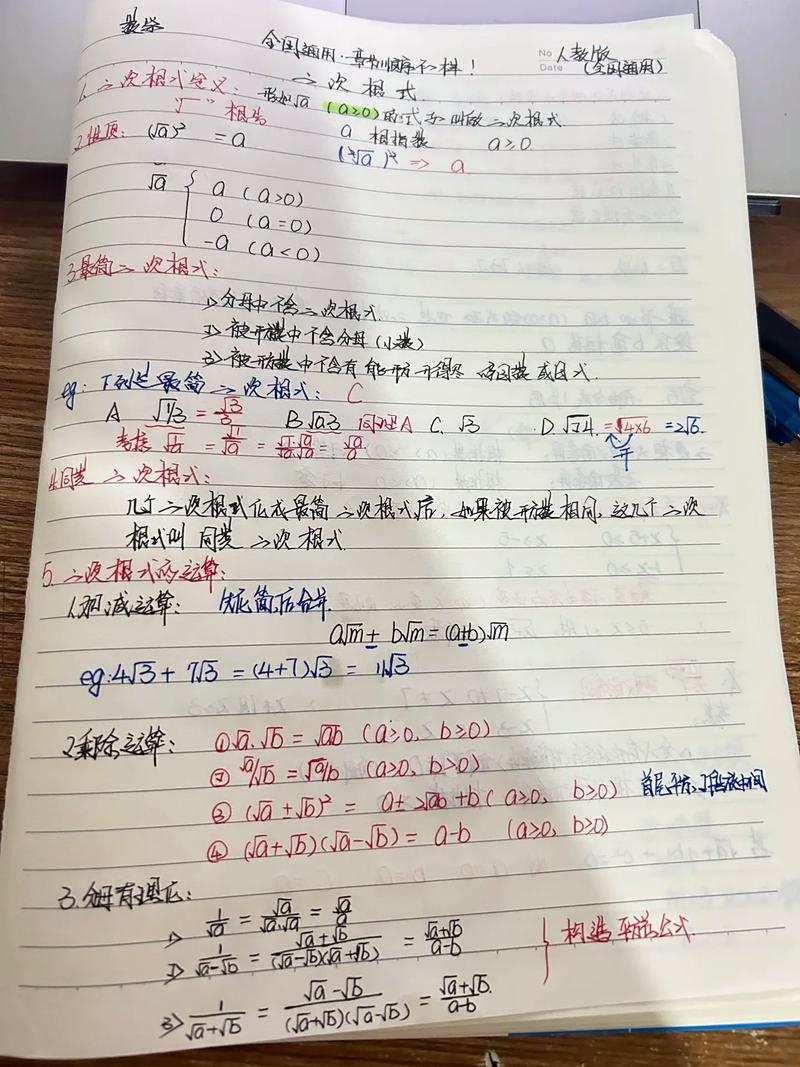 数学
全国通用·章节顺序不一样!
No 人教版
Date (全国通用)
二次根式
1、二次根式定义: 形如√a (a≥0)的式子叫做二次根式.
"√" 根号
a 根指数 a≥0
2.性质: (√a)² = a
(√a)² ⇒ a
√a { a (a>0)
0 (a=0)
-a (a<0)
3.最简二次根式:
1>分母中不含二次根式.
2>被开方数中不含分母(小数)
3>被开方数中不含有能开方开得尽 的因数或因式.
eg: 下列是最简二次根式: C
A √1/3 = √3/3 B.√a3 同理A C. √3 D.√24 = √4×6 = 2√6.
考据 √1/a = √1/√a = √1·√a/√a·√a = √a/a
开
4.同类二次根式:
几个二次根式化成最简二次根式后, 如果被开方数相同, 这几个二次
根式叫 同类二次根式.
5.二次根式的运算:
1.加减运算: 化简后合并.
a√m ± b√m = (a±b)√m
eg: 4√3 + 7√3 = (4+7)√3 = 11√3
2.乘除运算: ①√a·√b = √ab (a≥0, b≥0)
②√a/√b = √a/b (a≥0, b>0)
③ (√a ± √b)² = a ± 2√ab + b (a≥0, b≥0) 首尾平方,
④ (√a+√b)(√a-√b) = a-b (a≥0, b≥0)
3.分母有理化:
1> 1/√a = √a/√a·√a = √a/a
2> 1/√a-√b = √a+√b/(√a-√b)(√a+√b) = √a+√b/a-b
} 构造平方差公式.
3> 1/√a+√b = √a-√b/(√a+√b)(√a-√b) = √a+√b/a-b.